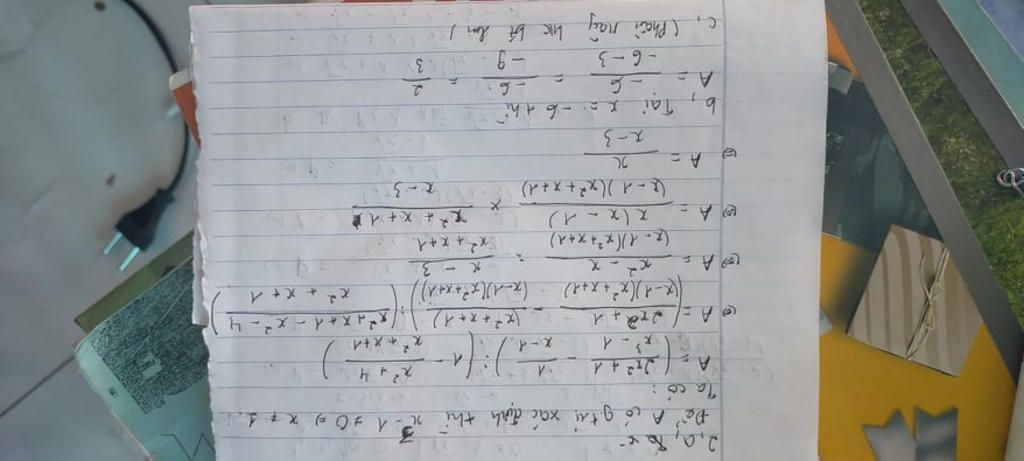 2, a,
Để A có giá trị xác định thì x - 1 ≠ 0 ⇒ x ≠ 1
Ta có:
A = ( (2x² + 1)/(x³ - 1) - 1/(x - 1) ) : ( 1 - (x² + 4)/(x² + x + 1) )
⇔ A = ( (2x² + 1)/((x-1)(x² + x+1)) - (x² + x + 1)/((x-1)(x²+x+1)) ) : ( (x² + x + 1 - x² - 4)/(x² + x + 1) )
⇔ A = (x² - x)/((x - 1)(x² + x+1)) : (x - 3)/(x² + x + 1)
⇔ A = x(x - 1)/((x - 1)(x² + x + 1)) × (x² + x + 1)/(x - 3)
⇔ A = x/(x - 3)
b, Tại x = -6 thì
A = -6/(-6 - 3) = -6/-9 = 2/3
c, (Phần này lúc bt làm)